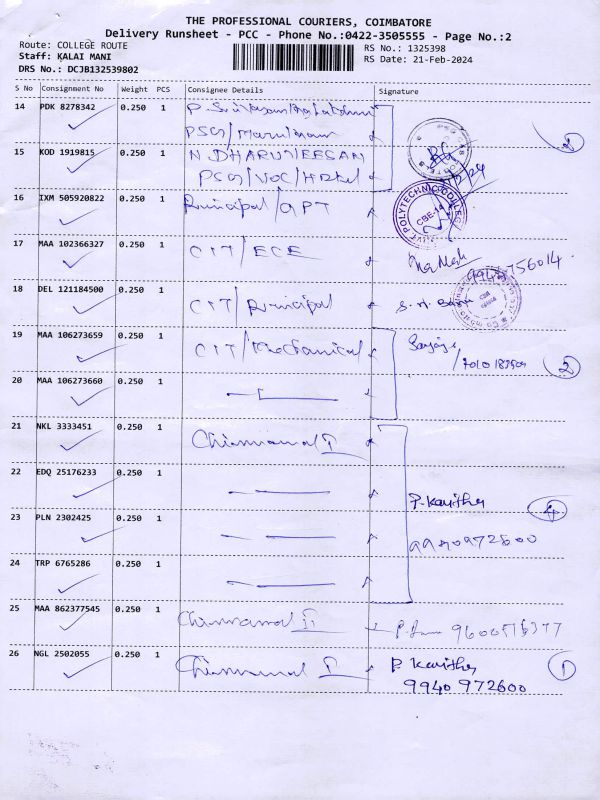 THE PROFESSIONAL COURIERS, COIMBATORE
Delivery Runsheet - PCC - Phone No.:0422-3505555 - Page No.:2
Route: COLLEGE ROUTE
RS No.: 1325398
Staff: KALAI MANI
RS Date: 21-Feb-2024
DRS No.: DCJB132539802
S No Consignment No Weight PCS Consignee Details Signature
14 PDK 8278342 0.250 1
PSG/
15 KOD 1919815 0.250 1 N. DHARUNEESAN
PSG/VOC/Hostel
16 IXM 505920822 0.250 1 Principal/GPT
POLYTECHNIC COLLEGE
CBE-14
17 MAA 102366327 0.250 1 CIT/ECE
18 DEL 121184500 0.250 1 CIT/Principal
19 MAA 106273659 0.250 1 CIT/Mechanical
2
20 MAA 106273660 0.250 1
21 NKL 3333451 0.250 1 Chinnamal I
22 EDQ 25176233 0.250 1 P. Kavitha 4
23 PLN 2302425 0.250 1 9940972600
24 TRP 6765286 0.250 1
25 MAA 862377545 0.250 1 Chinnamal II
26 NGL 2502055 0.250 1 Chinnamal I P. Kavitha 1
9940 972600